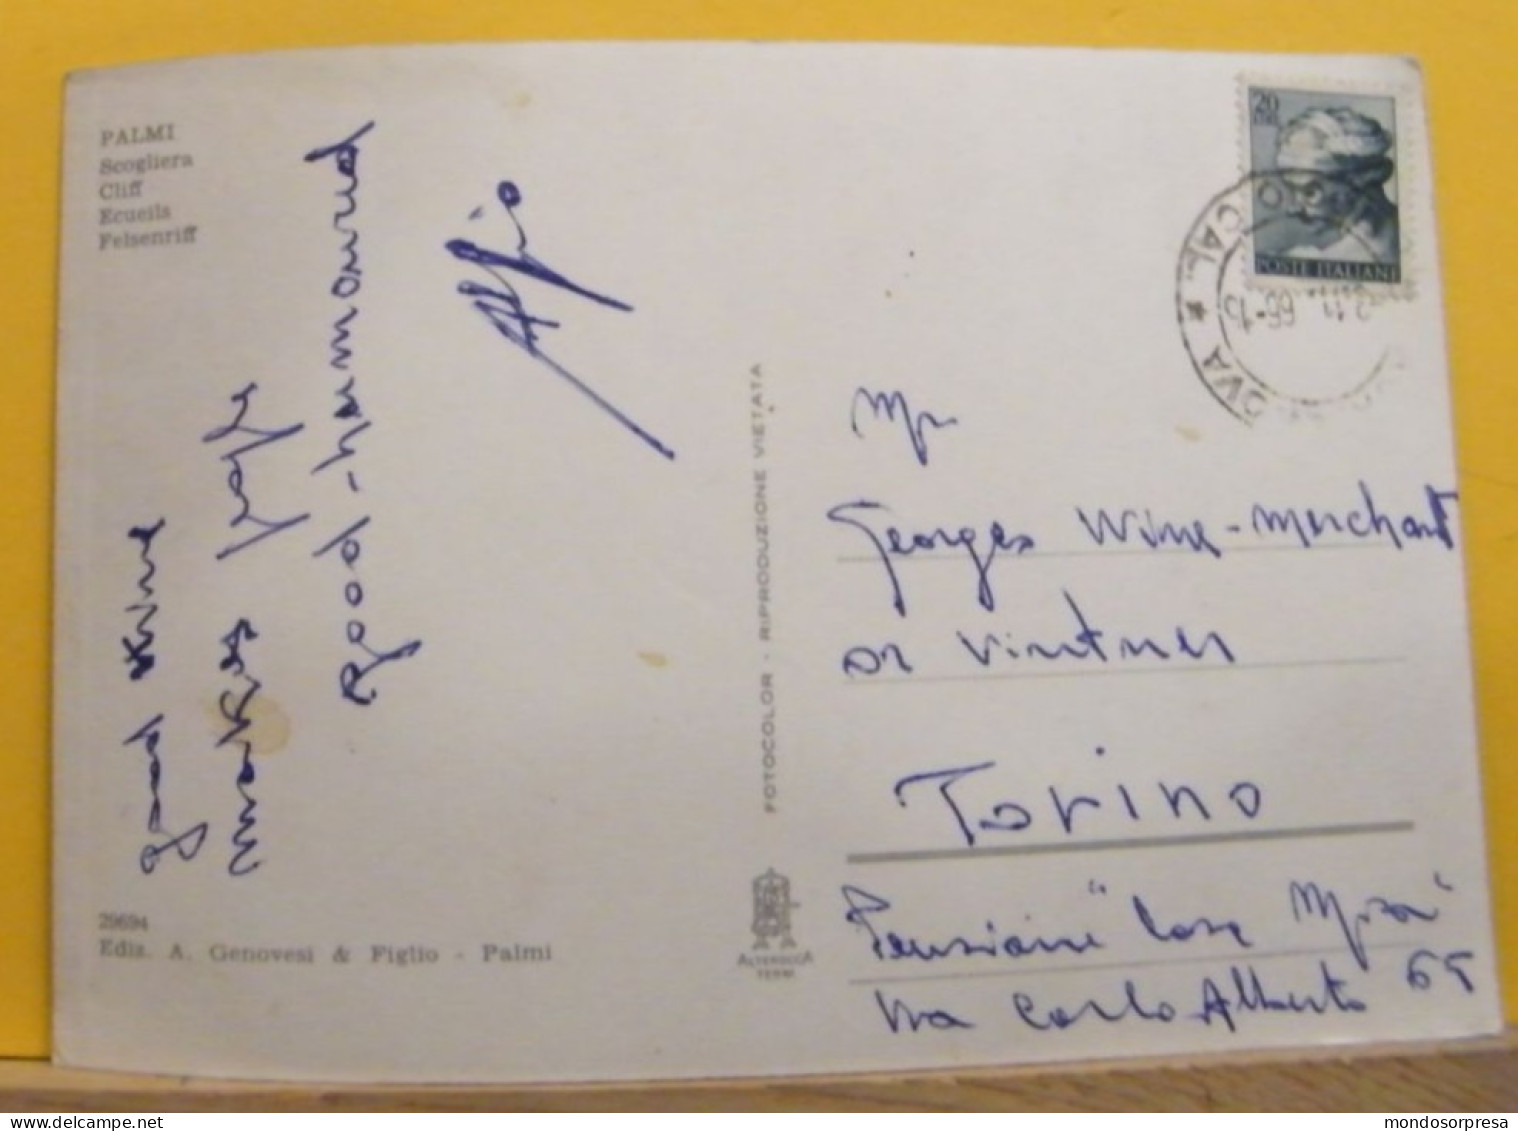 PALMI
Scogliera
Cliff
Ecueils
Felsenriff
good wine
makes
good-humoured
29694
Ediz. A. Genovesi & Figlio - Palmi
FOTOCOLOR - RIPRODUZIONE VIETATA
ALTEROCCA
TERNI
20
LIRE
POSTE ITALIANE
Mr
Georges Wine-merchant
or Vintner
Torino
Pensione "Casa Mia"
Via Carlo Alberto 65
mondosorpresa